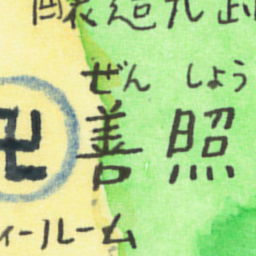 ぜん しょう
卍 善照
ィールーム